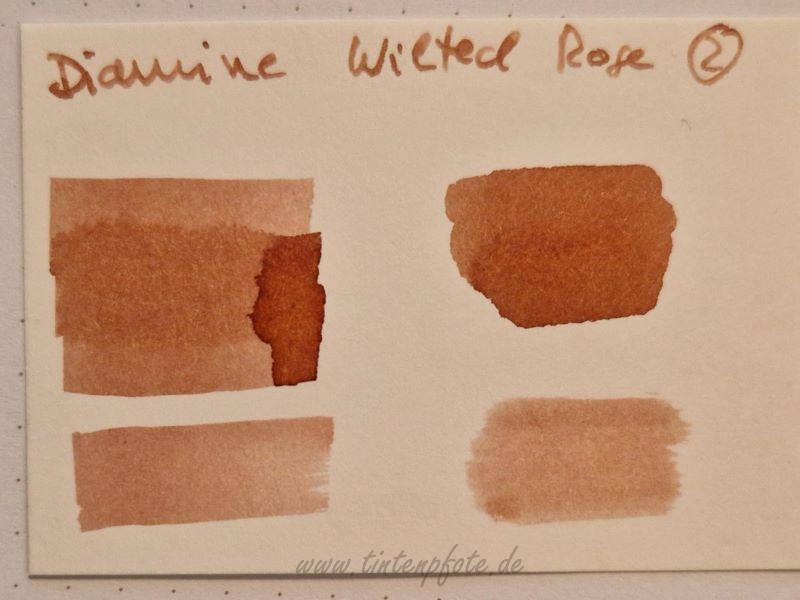 Diamine Wilted Rose 2
www.tintenpfote.de